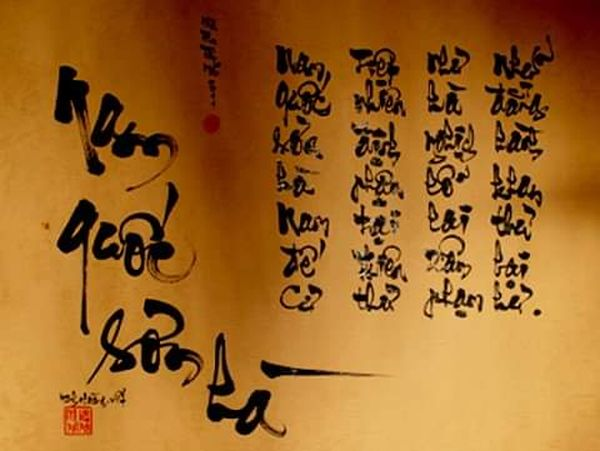 Nam
quốc
sơn
hà
Nam quốc sơn hà Nam đế cư
Tiệt nhiên định phận tại thiên thư
Như hà nghịch lỗ lai xâm phạm
Nhữ đẳng hành khan thủ bại hư.